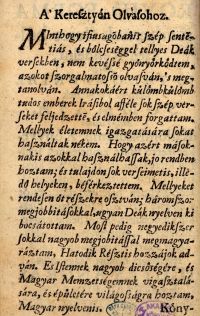 A' Keresztyán Olvasohoz.
MInthogy ifiuságobanis szép sentē-
tiás, és bölcseséggel tellyes Deák
versekben, nem kevéssé gyönyörködtem,
azokot szorgalmatosō olvasván, 's meg-
tanolván. Annakokáért külömbkülömb
tudos emberek Irásibol afféle sok szép ver-
seket feljedzettē, és elmémben forgattam.
Mellyek életemnek igazgatására sokat
használtak nékem. Hogy azért máfok-
nakis azokkal használhassak, jo rendben
hoztam; és tulajdon sok verseimetis, ille-
dő helyeken, béférkeztettem. Mellyeket
rendesen öt részekre osztván; háromszor
megjobbitásokkal, ugyan Deák nyelven ki
bocsátottam. Most pedig negyedikszer
sokkal nagyob megjobitással megmagya-
ráztam, Hatodik Résztis hozzájok ad-
ván. Es Istennek nagyob dicsőségére, és
Magyar Nemzetségemnek vigasztalá-
sára, és épületére világosságra hoztam,
Magyar nyelvenis. Köny-